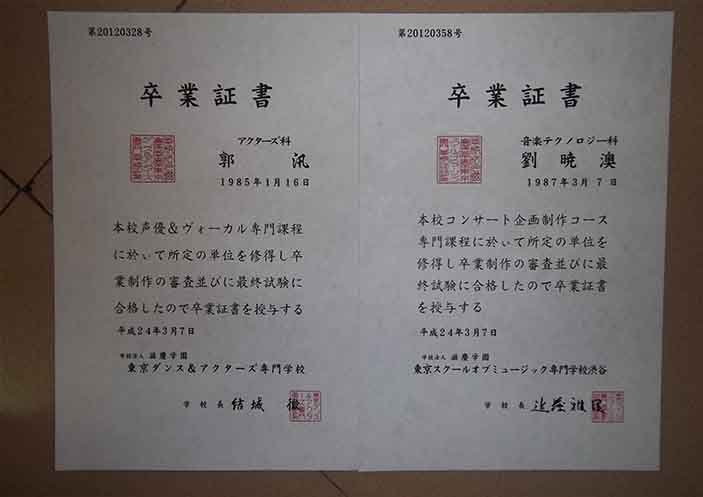 第20120328号
卒業証書
アクターズ科
郭 汛
1985年1月16日
本校声優&ヴォーカル専門課程
に於いて所定の単位を修得し卒
業制作の審査並びに最終試験に
合格したので卒業証書を授与する
平成24年3月7日
学校法人 滋慶学園
東京ダンス&アクターズ専門学校
学校長 結城 徹
第20120358号
卒業証書
音楽テクノロジー科
劉 暁 澳
1987年3月7日
本校コンサート企画制作コース
専門課程に於いて所定の単位を
修得し卒業制作の審査並びに最
終試験に合格したので卒業証書
を授与する
平成24年3月7日
学校法人 滋慶学園
東京スクールオブミュージック専門学校渋谷
学校長